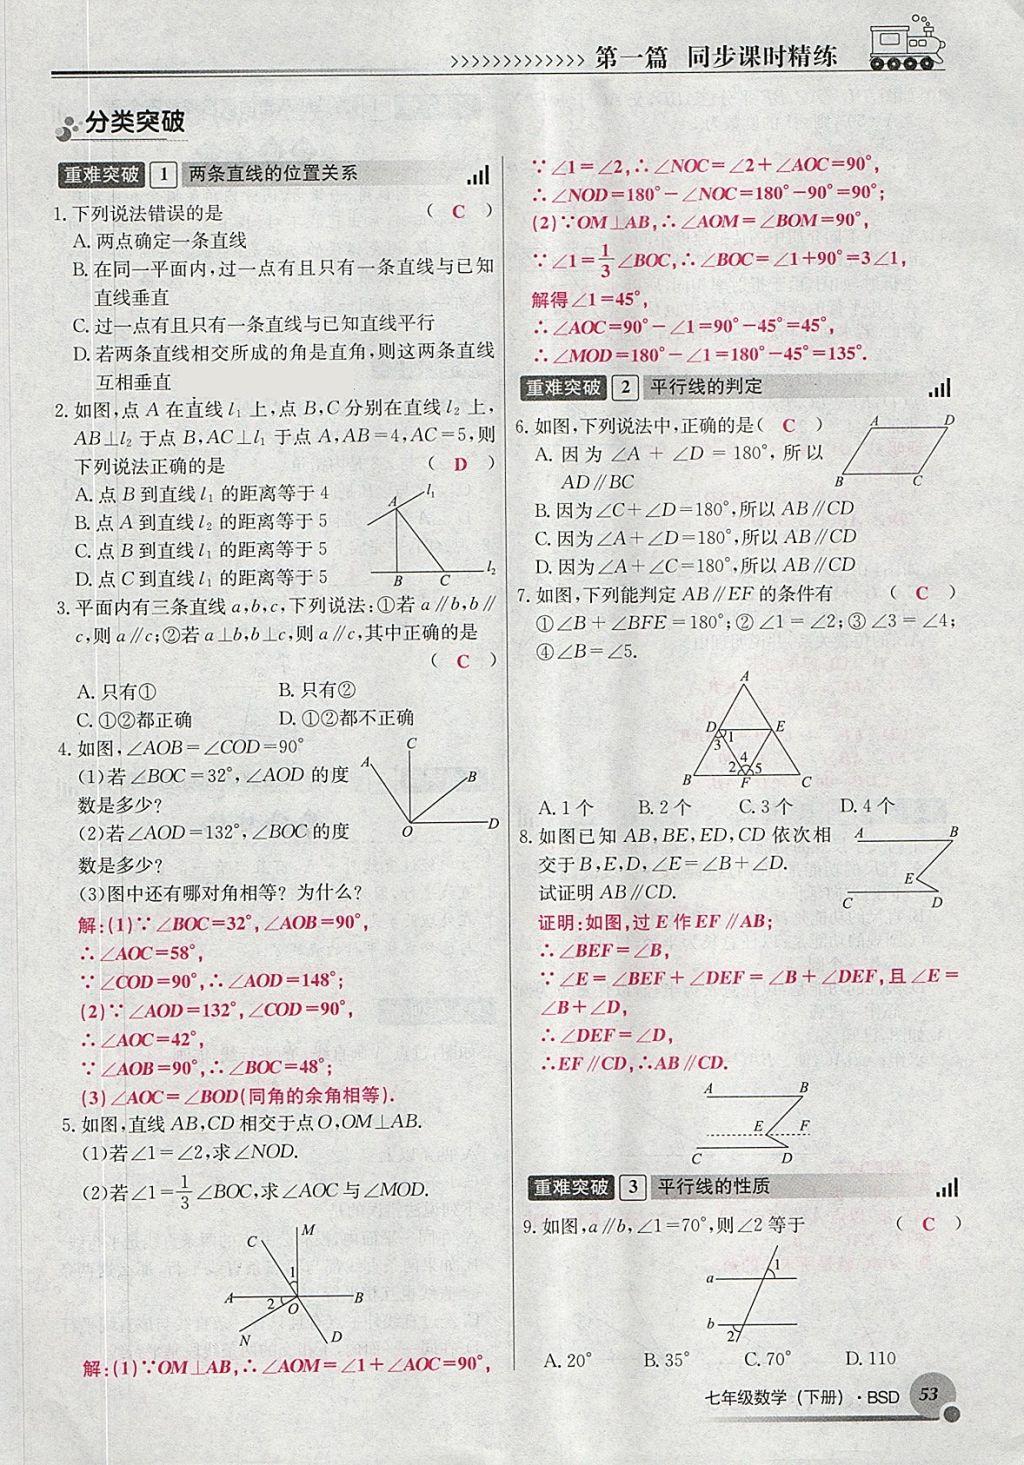 第一篇 同步课时精练
分类突破
重难突破 1 两条直线的位置关系
1.下列说法错误的是 ( C )
A.两点确定一条直线
B.在同一平面内,过一点有且只有一条直线与已知
直线垂直
C.过一点有且只有一条直线与已知直线平行
D.若两条直线相交所成的角是直角,则这两条直线
互相垂直
2.如图,点A在直线l₁上,点B,C分别在直线l₂上,
AB⊥l₂于点B,AC⊥l₁于点A,AB=4,AC=5,则
下列说法正确的是 ( D )
A.点B到直线l₁的距离等于4
B.点A到直线l₂的距离等于5
C.点B到直线l₁的距离等于5
D.点C到直线l₁的距离等于5
A l₁
B C l₂
3.平面内有三条直线a,b,c,下列说法:①若a∥b,b∥
c,则a∥c;②若a⊥b,b⊥c,则a∥c,其中正确的是
( C )
A.只有① B.只有②
C.①②都正确 D.①②都不正确
4.如图,∠AOB=∠COD=90°
(1)若∠BOC=32°,∠AOD的度
数是多少?
(2)若∠AOD=132°,∠BOC的度
数是多少?
(3)图中还有哪对角相等?为什么?
C
A
B
O D
解:(1)∵∠BOC=32°,∠AOB=90°,
∴∠AOC=58°,
∵∠COD=90°,∴∠AOD=148°;
(2)∵∠AOD=132°,∠COD=90°,
∴∠AOC=42°,
∵∠AOB=90°,∴∠BOC=48°;
(3)∠AOC=∠BOD(同角的余角相等).
5.如图,直线AB,CD相交于点O,OM⊥AB.
(1)若∠1=∠2,求∠NOD.
(2)若∠1=1/3∠BOC,求∠AOC与∠MOD.
M
C
1
A 2 O B
N D
解:(1)∵OM⊥AB,∴∠AOM=∠1+∠AOC=90°,
∵∠1=∠2,∴∠NOC=∠2+∠AOC=90°,
∴∠NOD=180°-∠NOC=180°-90°=90°;
(2)∵OM⊥AB,∴∠AOM=∠BOM=90°,
∵∠1=1/3∠BOC,∴∠BOC=∠1+90°=3∠1,
解得∠1=45°,
∴∠AOC=90°-∠1=90°-45°=45°,
∴∠MOD=180°-∠1=180°-45°=135°.
重难突破 2 平行线的判定
6.如图,下列说法中,正确的是( C )
A.因为∠A+∠D=180°,所以
AD∥BC
B.因为∠C+∠D=180°,所以AB∥CD
C.因为∠A+∠D=180°,所以AB∥CD
D.因为∠A+∠C=180°,所以AB∥CD
A D
B C
7.如图,下列能判定AB∥EF的条件有 ( C )
①∠B+∠BFE=180°;②∠1=∠2;③∠3=∠4;
④∠B=∠5.
A
D 1 E
3
4
2 5
B F C
A.1个 B.2个 C.3个 D.4个
8.如图已知AB,BE,ED,CD依次相
交于B,E,D,∠E=∠B+∠D.
试证明AB∥CD.
A B
E
C D
证明:如图,过E作EF∥AB;
∴∠BEF=∠B,
∵∠E=∠BEF+∠DEF=∠B+∠DEF,且∠E=
∠B+∠D,
∴∠DEF=∠D,
∴EF∥CD,∴AB∥CD.
A B
E F
C D
重难突破 3 平行线的性质
9.如图,a∥b,∠1=70°,则∠2等于 ( C )
1
a
b
2
A.20° B.35° C.70° D.110
七年级数学(下册)·BSD 53